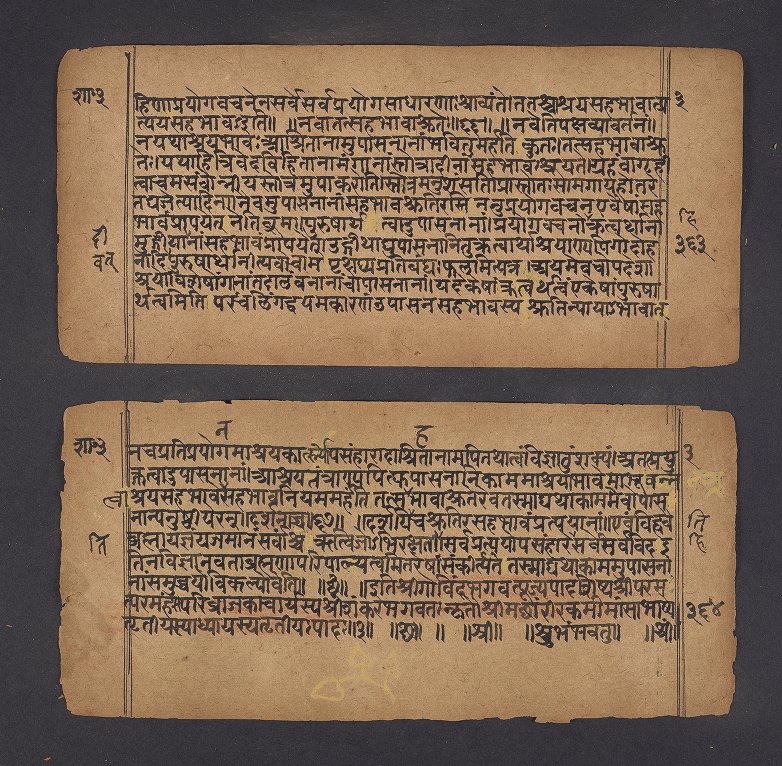 शा॰ ३
हिणाप्रयोगवचनेनसर्वेसर्वप्रयोगसाधारणाःश्राव्यंते।ततश्चाश्रयसहभावात्प्र ३
त्ययसहभावइति॥ ॥नवातत्सहभावाश्रुतेः॥६५॥ ॥नवेतिपक्षव्यावर्तनं॥
नयथाश्रयभावःआश्रितानामुपासनानांभवितुमर्हति कुतःतत्सहभावाश्रु
तेः।यथाहित्रिवेदविहितानामंगानांस्तोत्रादीनांसहभावःश्रूयतेग्रहंवागृही
त्वाचमसंवोन्नीयस्तोत्रमुपाकरोतिस्तोत्रमनुशंसतिप्रस्तोतःसामगायहोतरे
तद्यजेत्यादिना।नैवमुपासनानांसहभावश्रुतिरस्ति ननुप्रयोगवचनएषांसह
भावंप्रापयेत् नेतिब्रूमःपुरुषार्थत्वादुपासनानां।प्रयोगवचनोहिक्रत्वर्थाना
मुद्गीथादीनांसहभावंप्रापयेत्।उद्गीथाद्युपासनानितुक्रत्वर्थाश्रयाण्यपिगोदोह
नादिवत्पुरुषार्थानीत्यवोचाम पृथग्घ्यप्रतिबंधःफलमित्यत्र।अयमेवचोपदेशा
श्रयोविशेषोंगानांतदालंबनानांचोपासनानां।यदेकेषांक्रत्वर्थत्वमेकेषांपुरुषा
र्थत्वमिति परंचलिंगद्वयमकारणंउपासनसहभावस्य श्रुतिन्यायाऽभावात्
हि
३६३
दी
वत्
शा॰ ३
न
ह
नचप्रतिप्रयोगमाश्रयकार्त्स्न्योपसंहारादाश्रितानामपितथात्वंविज्ञातुंशक्यं।अतत्प्रयु ३
क्तत्वादुपासनानां।आश्रयतंत्राण्यपिह्युपासनानिकाममाश्रयाभावेमाभूवन्नन
आश्रयसहभावेसहभावनियममर्हंति तत्सहभावाश्रुतेरेवतस्माद्यथाकाममेवोपास
नान्यनुष्ठीयेरन्॥दर्शनाच्च॥६६॥ ॥दर्शयतिचश्रुतिरसहभावंप्रत्ययानां॥एवंविद्धवै
ब्रह्मायज्ञंयजमानंसर्वांश्च ऋत्विजोऽभिरक्षति।सर्वप्रत्ययोपसंहारेसर्वेसर्वविदइ
तिनविज्ञानवताब्रह्मणापरिपाल्यत्वमितरेषांसंकीर्त्येत तस्माद्यथाकाममुपासना
नांसमुच्चयोविकल्पोवेति॥ ॥छ॥ ॥इतिश्रीगोविंदभगवत्पूज्यपादशिष्यश्रीपरम
त्परमहंसपरिव्राजकाचार्यस्यश्रीशंकरभगवतःकृतौश्रीमच्छारीरकमीमांसाभाष्ये
तृतीयस्याध्यायस्यतृतीयःपादः॥३॥ ॥छ॥ ॥ ॥श्री॥ ॥शुभंभवतु॥ ॥श्री॥
ति
हि
३६४
ति